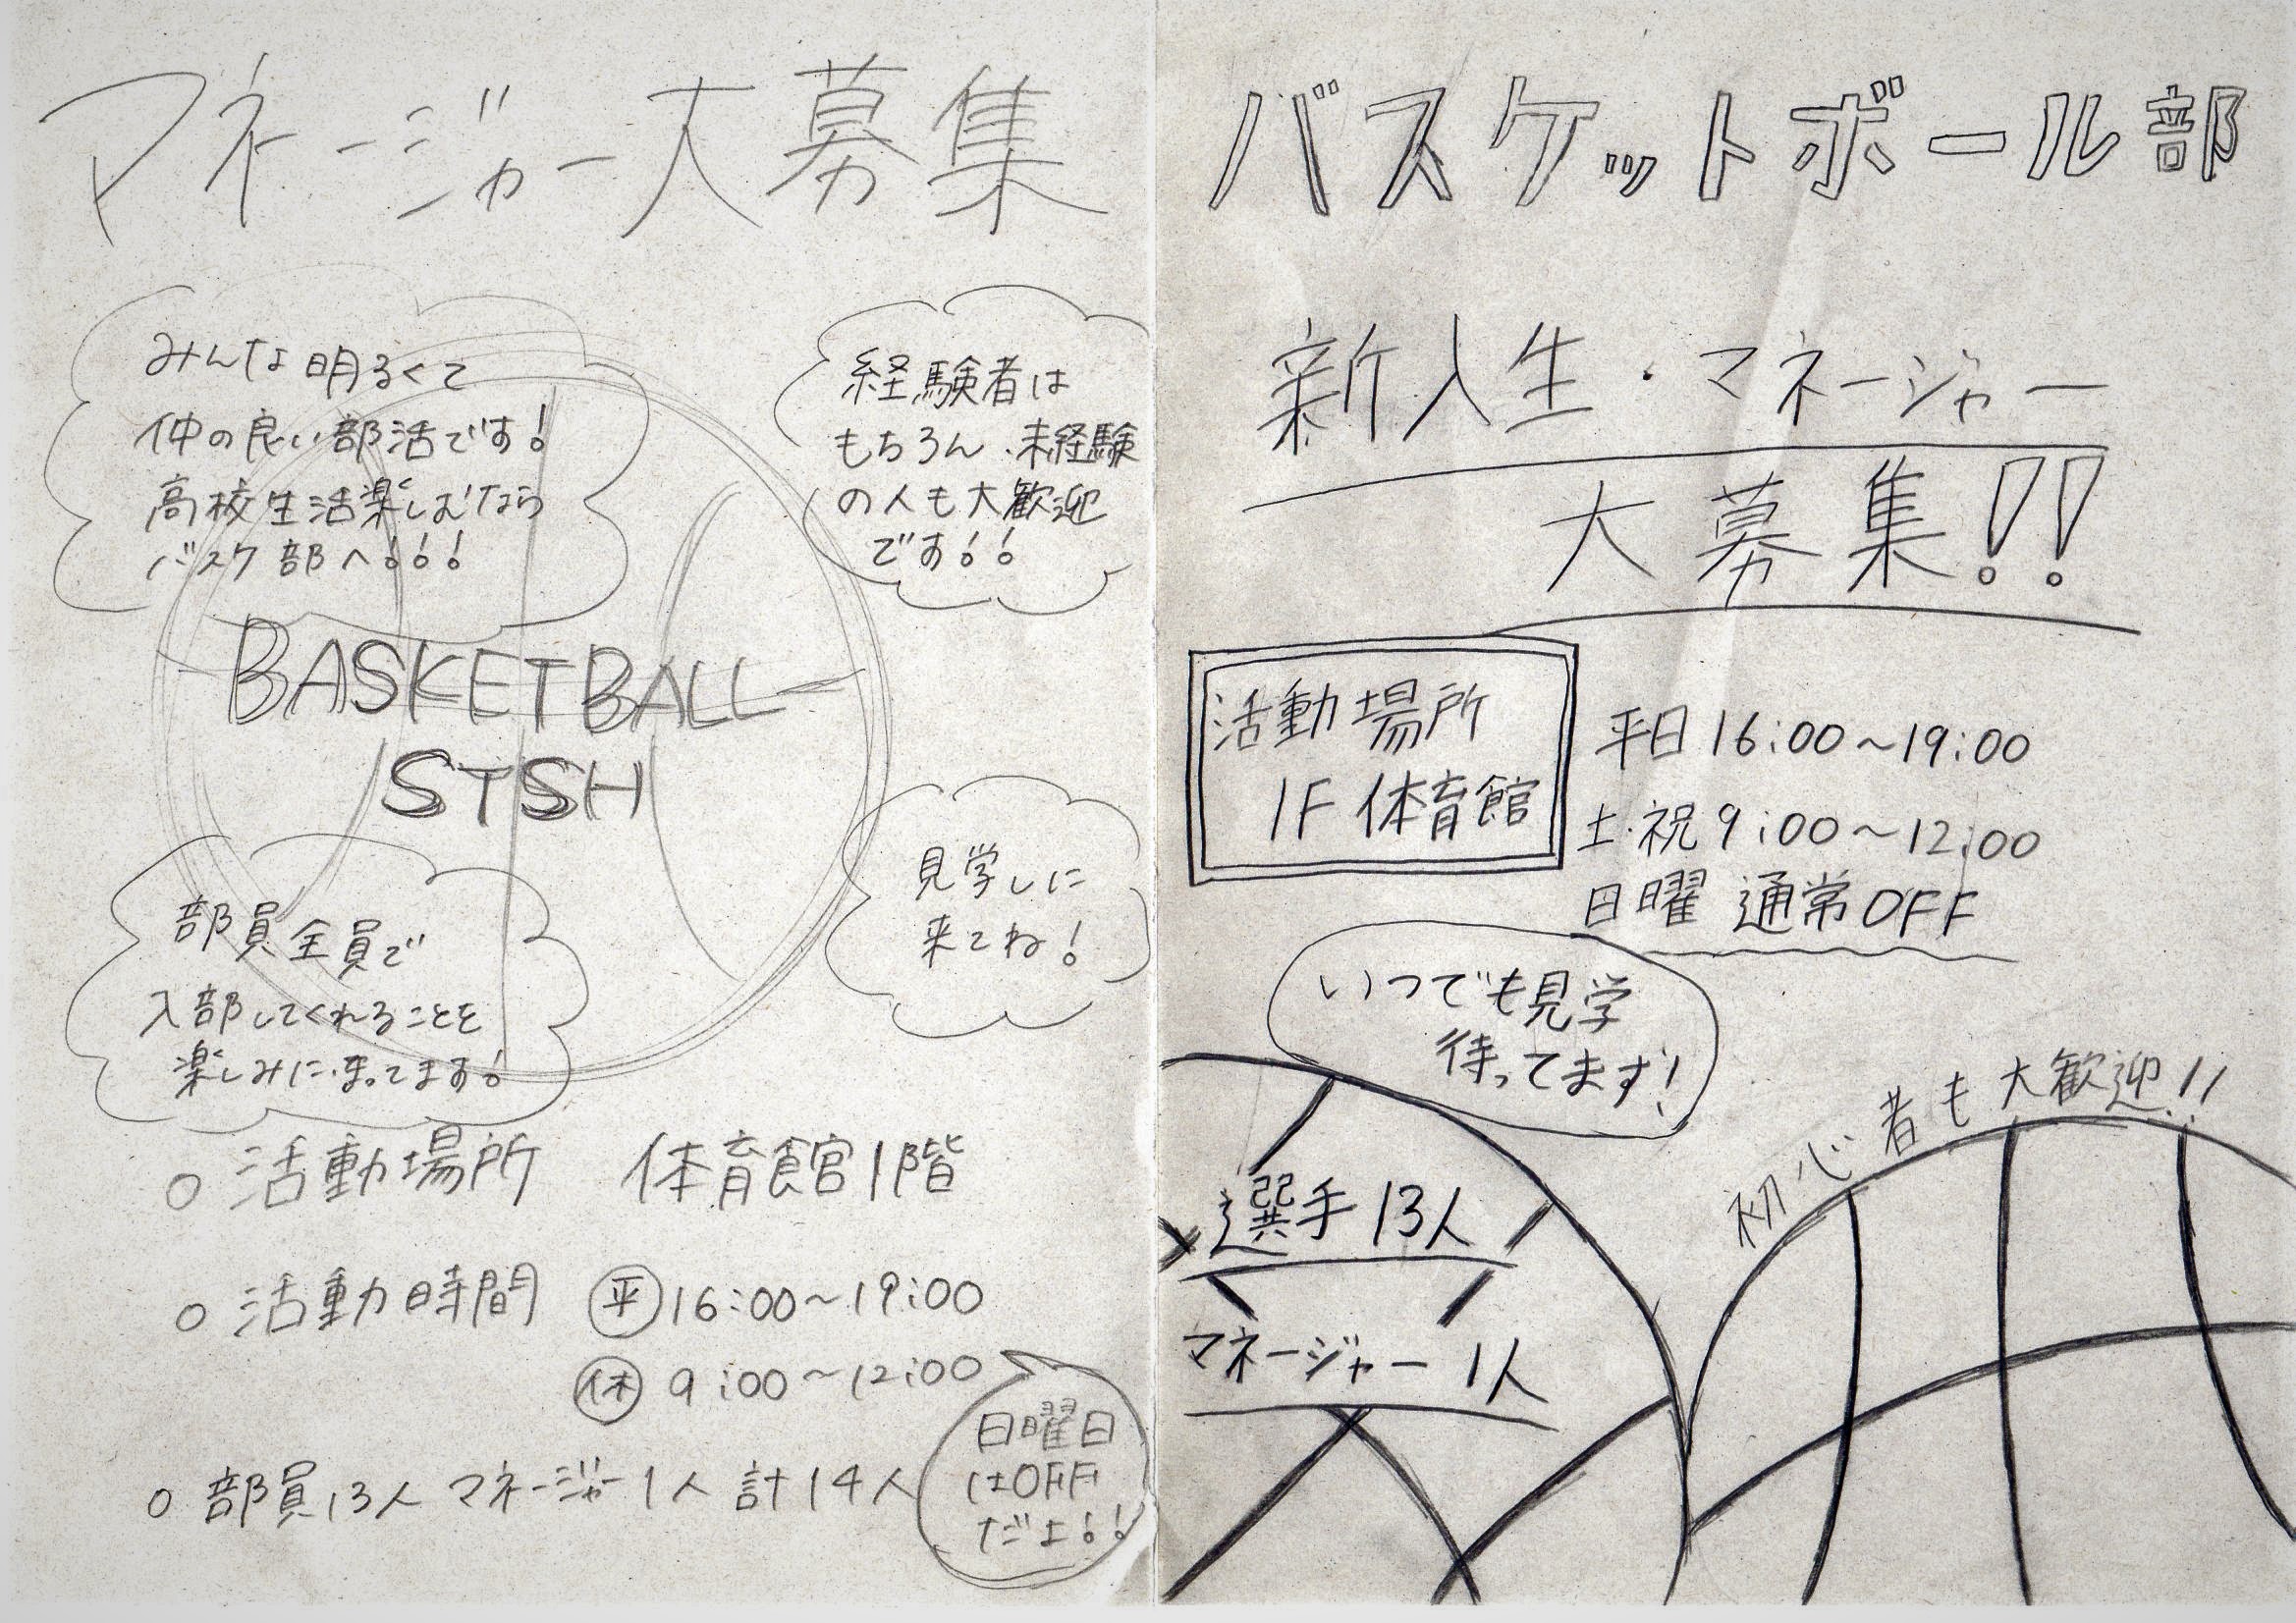 マネージャー大募集
みんな明るくて
仲の良い部活です!
高校生活楽しむなら
バスケ部へ!!!
経験者は
もちろん、未経験
の人も大歓迎
です!!
BASKETBALL
STSH
見学しに
来てね!
部員全員で
入部してくれることを
楽しみにまってます!
○ 活動場所 体育館1階
○ 活動時間 ㊥16:00~19:00
㊡ 9:00~12:00
日曜日
はOFF
だよ!!
○ 部員13人 マネージャー1人 計14人
バスケットボール部
新入生・マネージャー
大募集!!
活動場所
1F 体育館
平日 16:00~19:00
土・祝 9:00~12:00
日曜 通常OFF
いつでも見学
待ってます!
初心者も大歓迎!!
選手 13人
マネージャー 1人